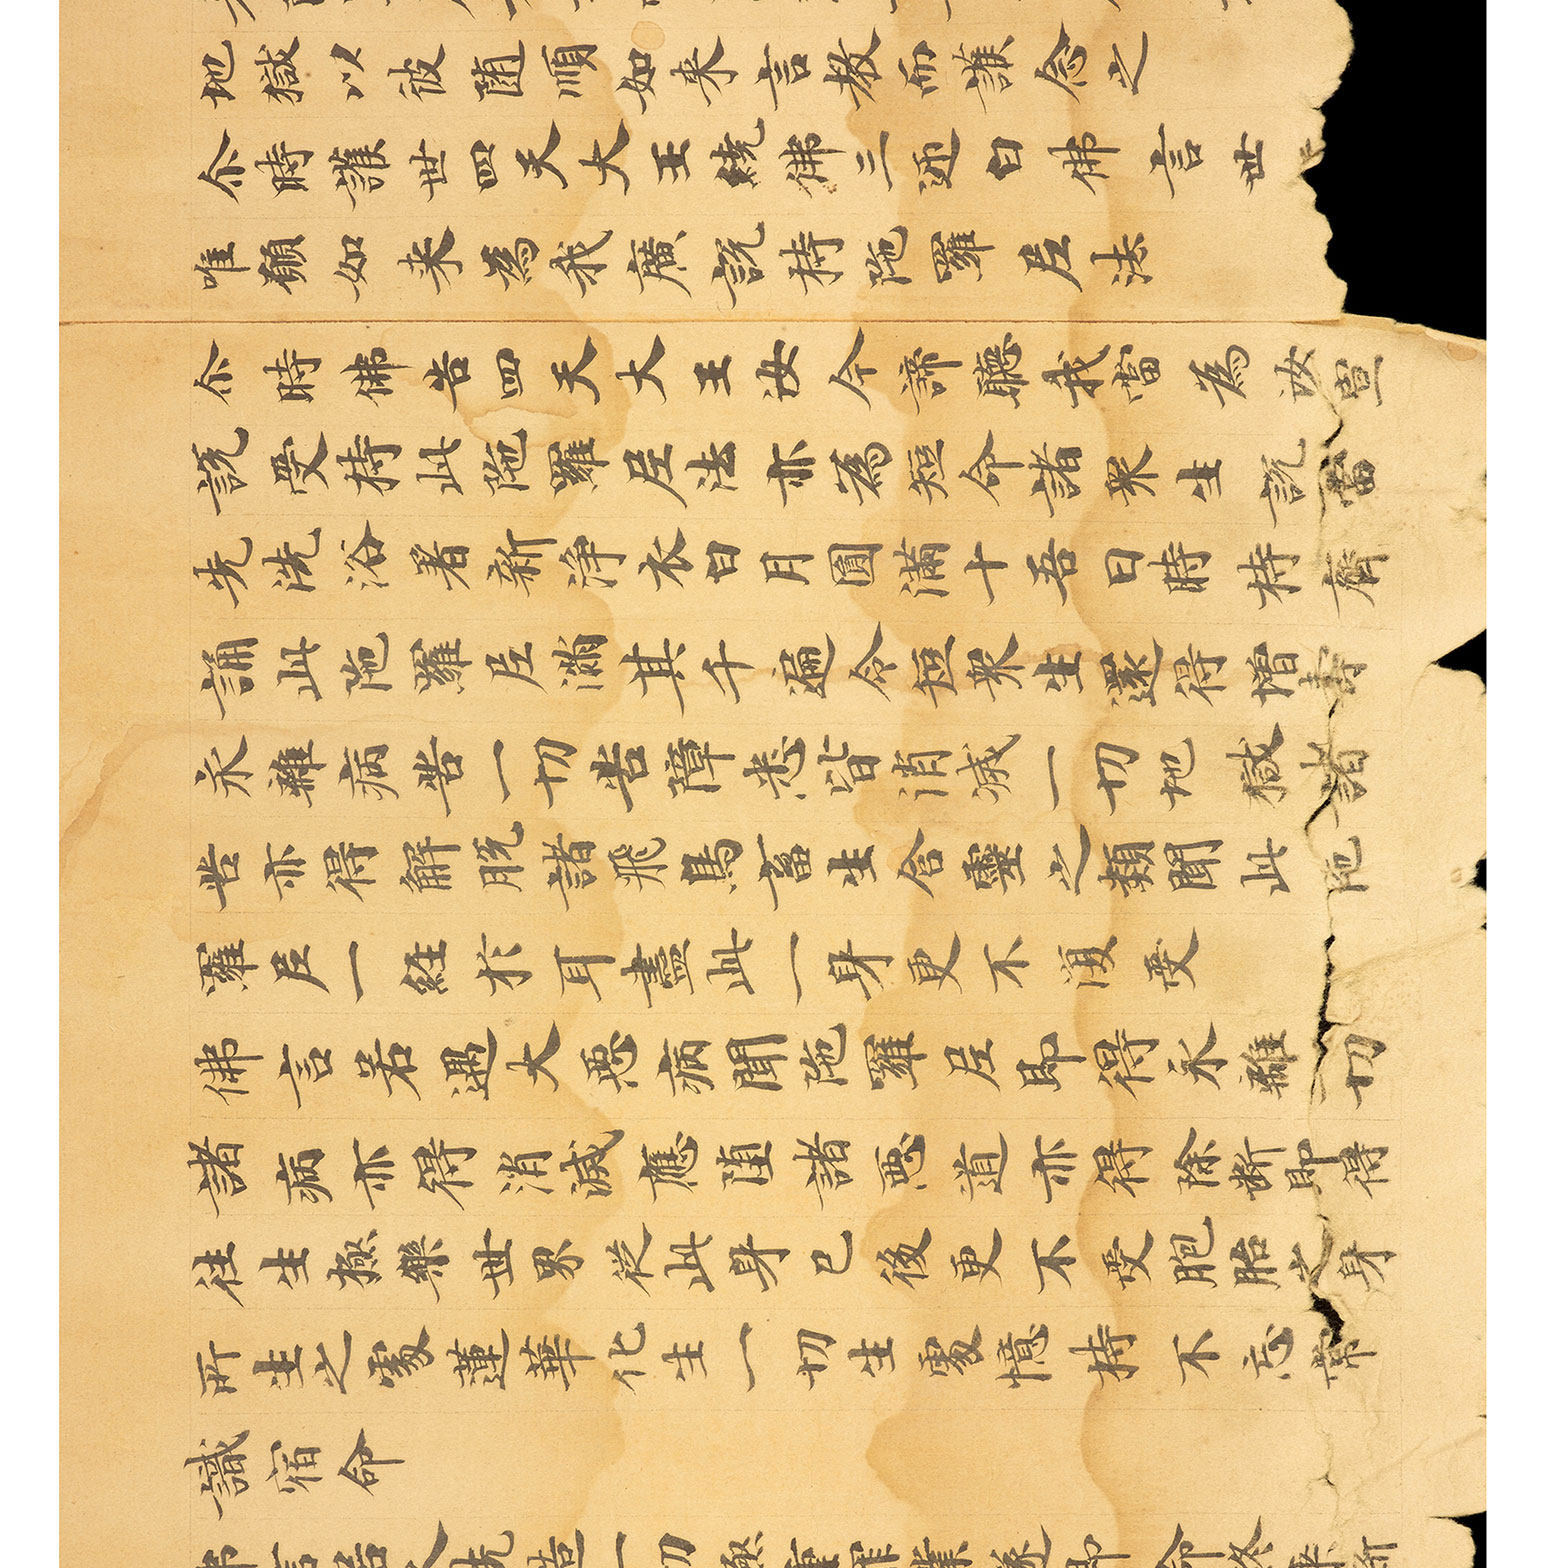 地獄以彼随順如来言教而護念之
尒時護世四天大王繞佛三迊白佛言世
唯願如来為我廣說持陁羅尼法
尒時佛告四天大王汝今諦聽我當為汝宣
說受持此陁羅尼法亦為短命諸衆生說當
先洗浴著新淨衣白月圓滿十五日時持齋
誦此陁羅尼滿其千遍令短衆生還得增壽
永離病苦一切苦障悉皆消滅一切地獄諸
苦亦得解脫諸飛鳥畜生含靈之類聞此陁
羅尼一經於耳盡此一身更不復受
佛言若遇大惡病聞陁羅尼即得永離切
諸病亦得消滅應墮諸惡道亦得除斷即得
往生極樂世界從此身已後更不受胞胎之身
所生之處蓮華化生一切生處憶持不忘常
識宿命